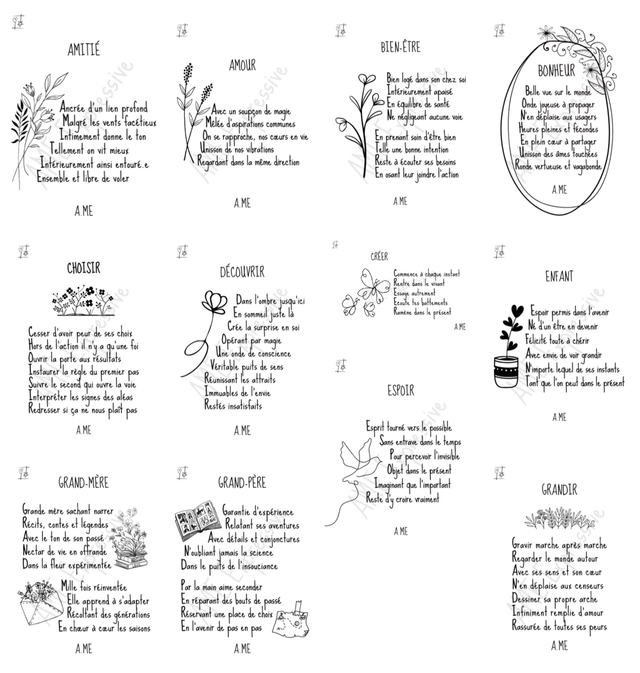 AMITIÉ
Ancrée d'un lien profond
Malgré les vents facétieux
Intimement donne le ton
Tellement on vit mieux
Intérieurement ainsi entouré.e
Ensemble et libre de voler
A.ME
AMOUR
Avec un soupçon de magie
Mêlée d'aspirations communes
On se rapproche, nos cœurs en vie
Unisson de nos vibrations
Regardant dans la même direction
A.ME
BIEN-ÊTRE
Bien logé dans son chez soi
Intérieurement apaisé
En équilibre de santé
Ne négligeant aucune voie
En prenant soin d'être bien
Telle une bonne intention
Reste à écouter ses besoins
En osant leur joindre l'action
A.ME
BONHEUR
Belle vue sur le monde
Onde joyeuse à propager
N'en déplaise aux usagers
Heures pleines et fécondes
En plein cœur à partager
Unisson des âmes touchées
Ronde vertueuse et vagabonde
A.ME
CHOISIR
Cesser d'avoir peur de ses choix
Hors de l'action il n'y a qu'une foi
Ouvrir la porte aux résultats
Instaurer la règle du premier pas
Suivre le second qui ouvre la voie
Interpréter les signes des aléas
Redresser si ça ne nous plaît pas
A.ME
DÉCOUVRIR
Dans l'ombre jusqu'ici
En sommeil juste là
Crée la surprise en soi
Opérant par magie
Une onde de conscience
Véritable puits de sens
Réunissant les attraits
Immuables de l'envie
Restés insatisfaits
A.ME
CRÉER
Commence à chaque instant
Rentre dans le vivant
Essaye autrement
Écoute tes battements
Ramène dans le présent
A.ME
ENFANT
Espoir permis dans l'avenir
Né d'un être en devenir
Félicité toute à chérir
Avec envie de voir grandir
N'importe lequel de ses instants
Tant que l'on peut dans le présent
A.ME
ESPOIR
Esprit tourné vers le possible
Sans entrave dans le temps
Pour percevoir l'invisible
Objet dans le présent
Imaginant que l'important
Reste d'y croire vraiment
A.ME
GRAND-MÈRE
Grande mère sachant narrer
Récits, contes et légendes
Avec le ton de son passé
Nectar de vie en offrande
Dans la fleur expérimentée
Mille fois réinventée
Elle apprend à s'adapter
Récoltant des générations
En chœur à cœur les saisons
A.ME
GRAND-PÈRE
Garantie d'expérience
Relatant ses aventures
Avec détails et conjonctures
N'oubliant jamais la science
Dans le puits de l'insouciance
Par la main aime seconder
En réparant des bouts de passé
Réservant une place de choix
En l'avenir de pas en pas
A.ME
GRANDIR
Gravir marche après marche
Regarder le monde autour
Avec ses sens et son cœur
N'en déplaise aux censeurs
Dessiner sa propre arche
Intiment remplie d'amour
Rassurée de toutes ses peurs
A.ME